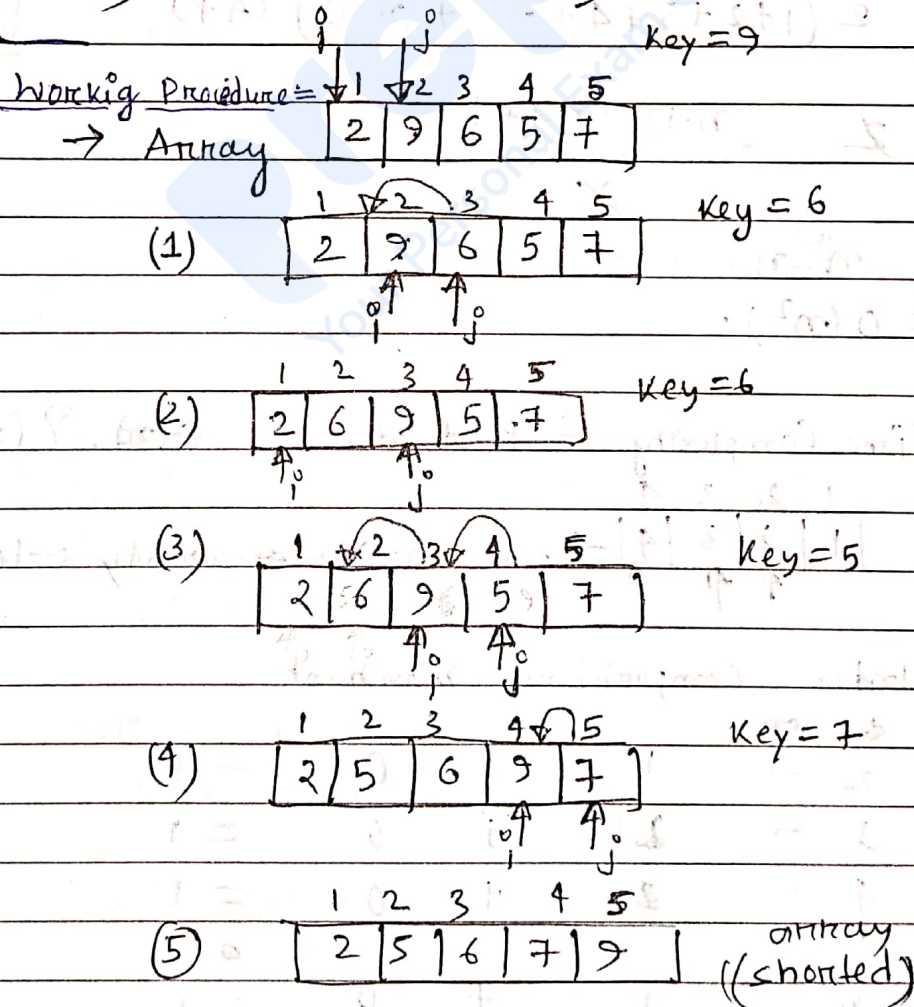 i j Key = 9
Workig Procedure :- 1 2 3 4 5
→ Array 2 9 6 5 7
1 2 3 4 5 Key = 6
(1) 2 9 6 5 7
i j
1 2 3 4 5 Key = 6
(2) 2 6 9 5 7
i j
(3) 1 2 3 4 5 Key = 5
2 6 9 5 7
i j
1 2 3 4 5 Key = 7
(4) 2 5 6 9 7
i j
1 2 3 4 5
(5) 2 5 6 7 9 array
(shorted)